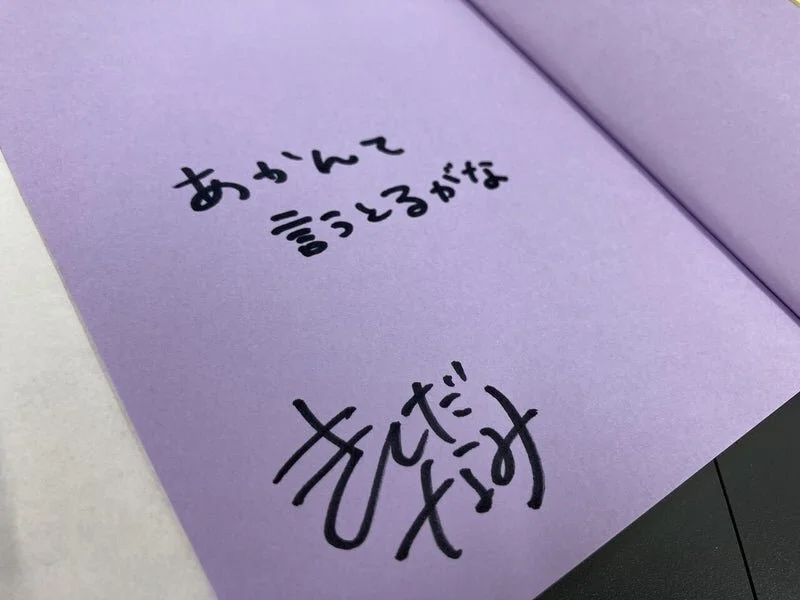 あかんて
言うとるがな
きしだ
なみ